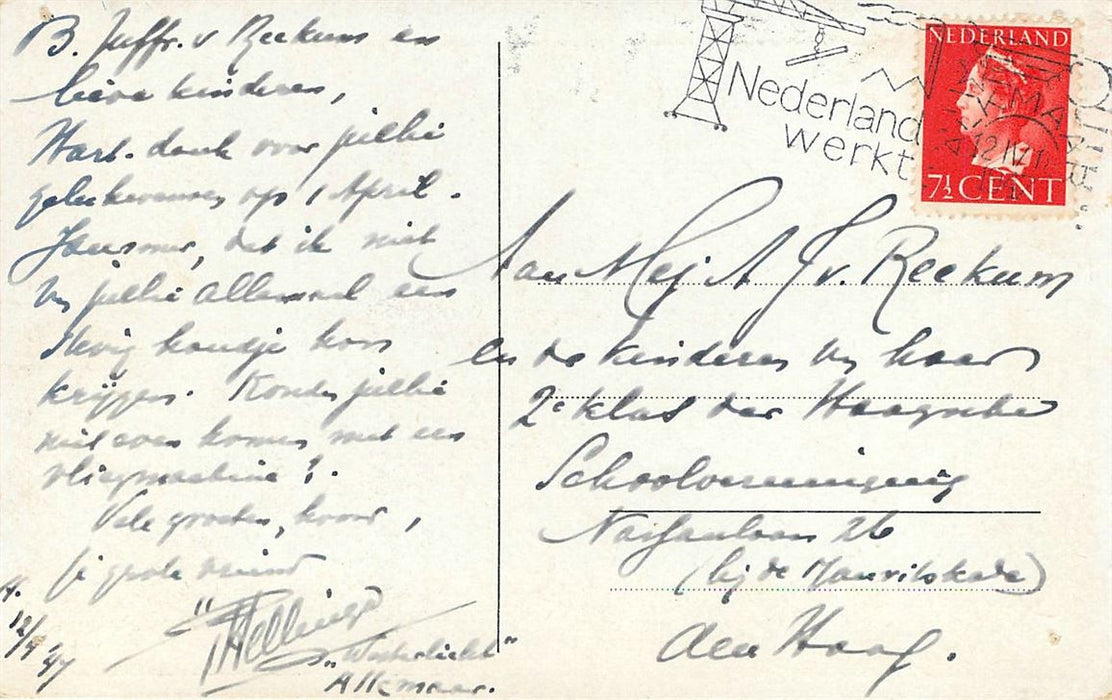 B. Juffr. v Reekum en
lieve kinderen,
Hart. dank voor jullie
gelukwensen op 1 April.
Jammer, dat ik niet
v jullie allemaal een
stevig handje kon
krijgen. Konden jullie
niet even komen met een
vliegmachine?.
Vele groeten, hoor,
je grote vriend
Hellinga
"Westerlicht"
Alkmaar.
A.
12/4 '47
Nederland
werkt
ALKMAAR
12 IV
NEDERLAND
7½ CENT
Aan Mej A J v. Reekum
en de kinderen v haar
2e klas der Haagsche
Schoolvereeniging
Nassaulaan 26
(bij de Mauritskade)
den Haag.